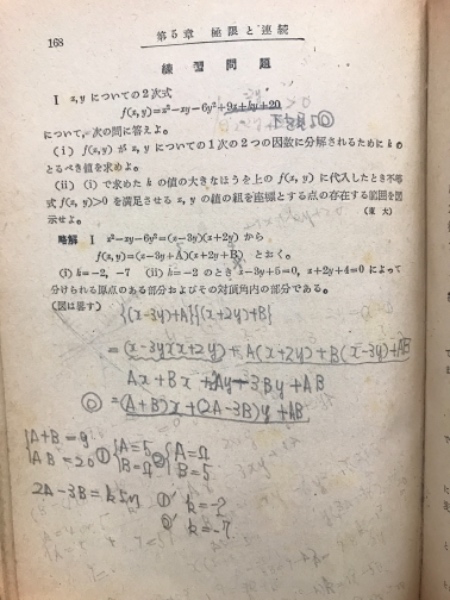 168
第5章 極限と連続
練習問題
I x, y についての2次式
f(x, y)=x²-xy-6y²+9x+ky+20
について,次の問に答えよ。
(i) f(x, y) が x, y についての1次の2つの因数に分解されるために k の
とるべき値を求めよ。
(ii) (i) で求めた k の値の大きなほうを上の f(x, y) に代入したとき不等
式 f(x, y)>0 を満足させる x, y の値の組を座標とする点の存在する範囲を図
示せよ。 (東大)
略解 I x²-xy-6y²=(x-3y)(x+2y) から
f(x, y)=(x-3y+A)(x+2y+B) とおく。
(i) k=-2, -7 (ii) k=-2 のとき x-3y+5=0, x+2y+4=0 によって
分けられる原点のある部分およびその対頂角内の部分である。
(図は略す)
{(x-3y)+A}{(x+2y)+B}
=(x-3y)(x+2y)+A(x+2y)+B(x-3y)+AB
Ax+Bx+2Ay-3By+AB
=(A+B)x+(2A-3B)y+AB
A+B=9
AB=20 ① A=5 ② A=4
B=4 B=5
2A-3B=k ①' k=-2
②' k=-7